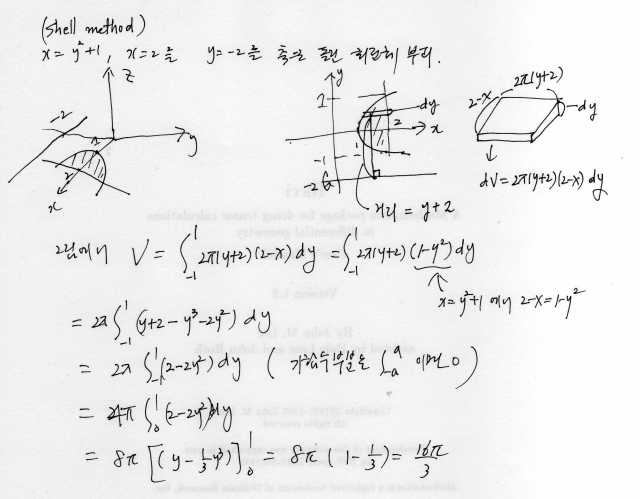 (shell method)
x = y²+1, x=2를 y=-2를 축으로 돌린 회전체 부피.
z
-2
y
2
x
y
1
dy
2
x
-1
1
-2
거리 = y+2
2π(y+2)
2-x
dy
dV = 2π(y+2)(2-x) dy
그림에서 V = ∫_{-1}^{1} 2π(y+2)(2-x) dy = ∫_{-1}^{1} 2π(y+2)(1-y²) dy
x=y²+1 에서 2-x=1-y²
= 2π ∫_{-1}^{1} (y+2-y³-2y²) dy
= 2π ∫_{-1}^{1} (2-2y²) dy ( 기함수부분은 ∫_{-a}^{a} 이면 0 )
= 4π ∫_{0}^{1} (2-2y²) dy
= 8π [(y - 1/3 y³)]_{0}^{1} = 8π (1 - 1/3) = 16π/3